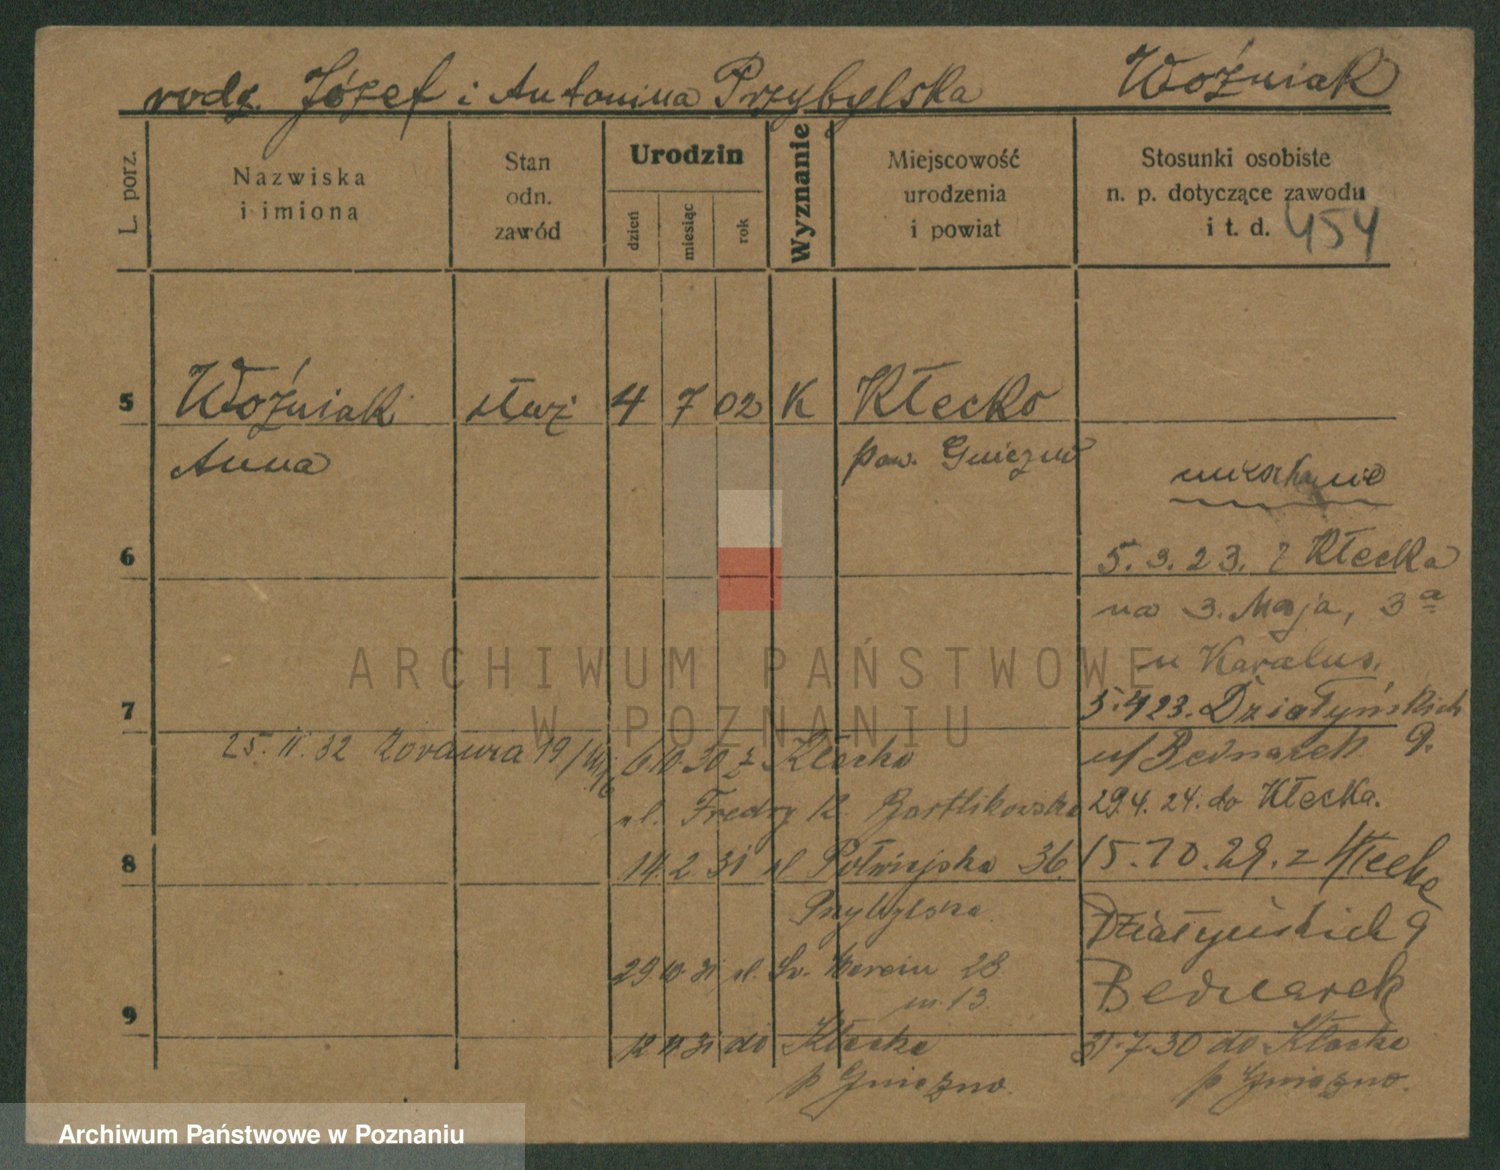 rodz. Józef i Antonina Przybylska Woźniak
L. porz.
Nazwiska
i imiona
Stan
odn.
zawód
Urodzin
dzień
miesiąc
rok
Wyznanie
Miejscowość
urodzenia
i powiat
Stosunki osobiste
n. p. dotyczące zawodu
i t. d. 454
5 Woźniak służ 4 7 02 K Kłecko
Anna pow. Gniezno
6
7
8
9
5.3.23. z Kłecka
na 3. Maja, 3a
u Karalus.
5.4 23. Działyńskich 9.
u/ Bednarek
29.4. 24. do Kłecka.
15.10.29. z Kłecka
Działyńskich 9
Bednarek
31.7.30 do Kłecka
p Gniezno.
6 10 30 z Kłecka
ul. Fredry 12. Bartlikowska
14.2.31 ul Półwiejska 36
Przybylska
29.10.31 ul. Św. Marcin 28
m. 13.
12 11 31 do Kłecka
p Gniezno.
25. 11. 32
19/
ARCHIWUM PAŃSTWOWE
W POZNANIU
Archiwum Państwowe w Poznaniu